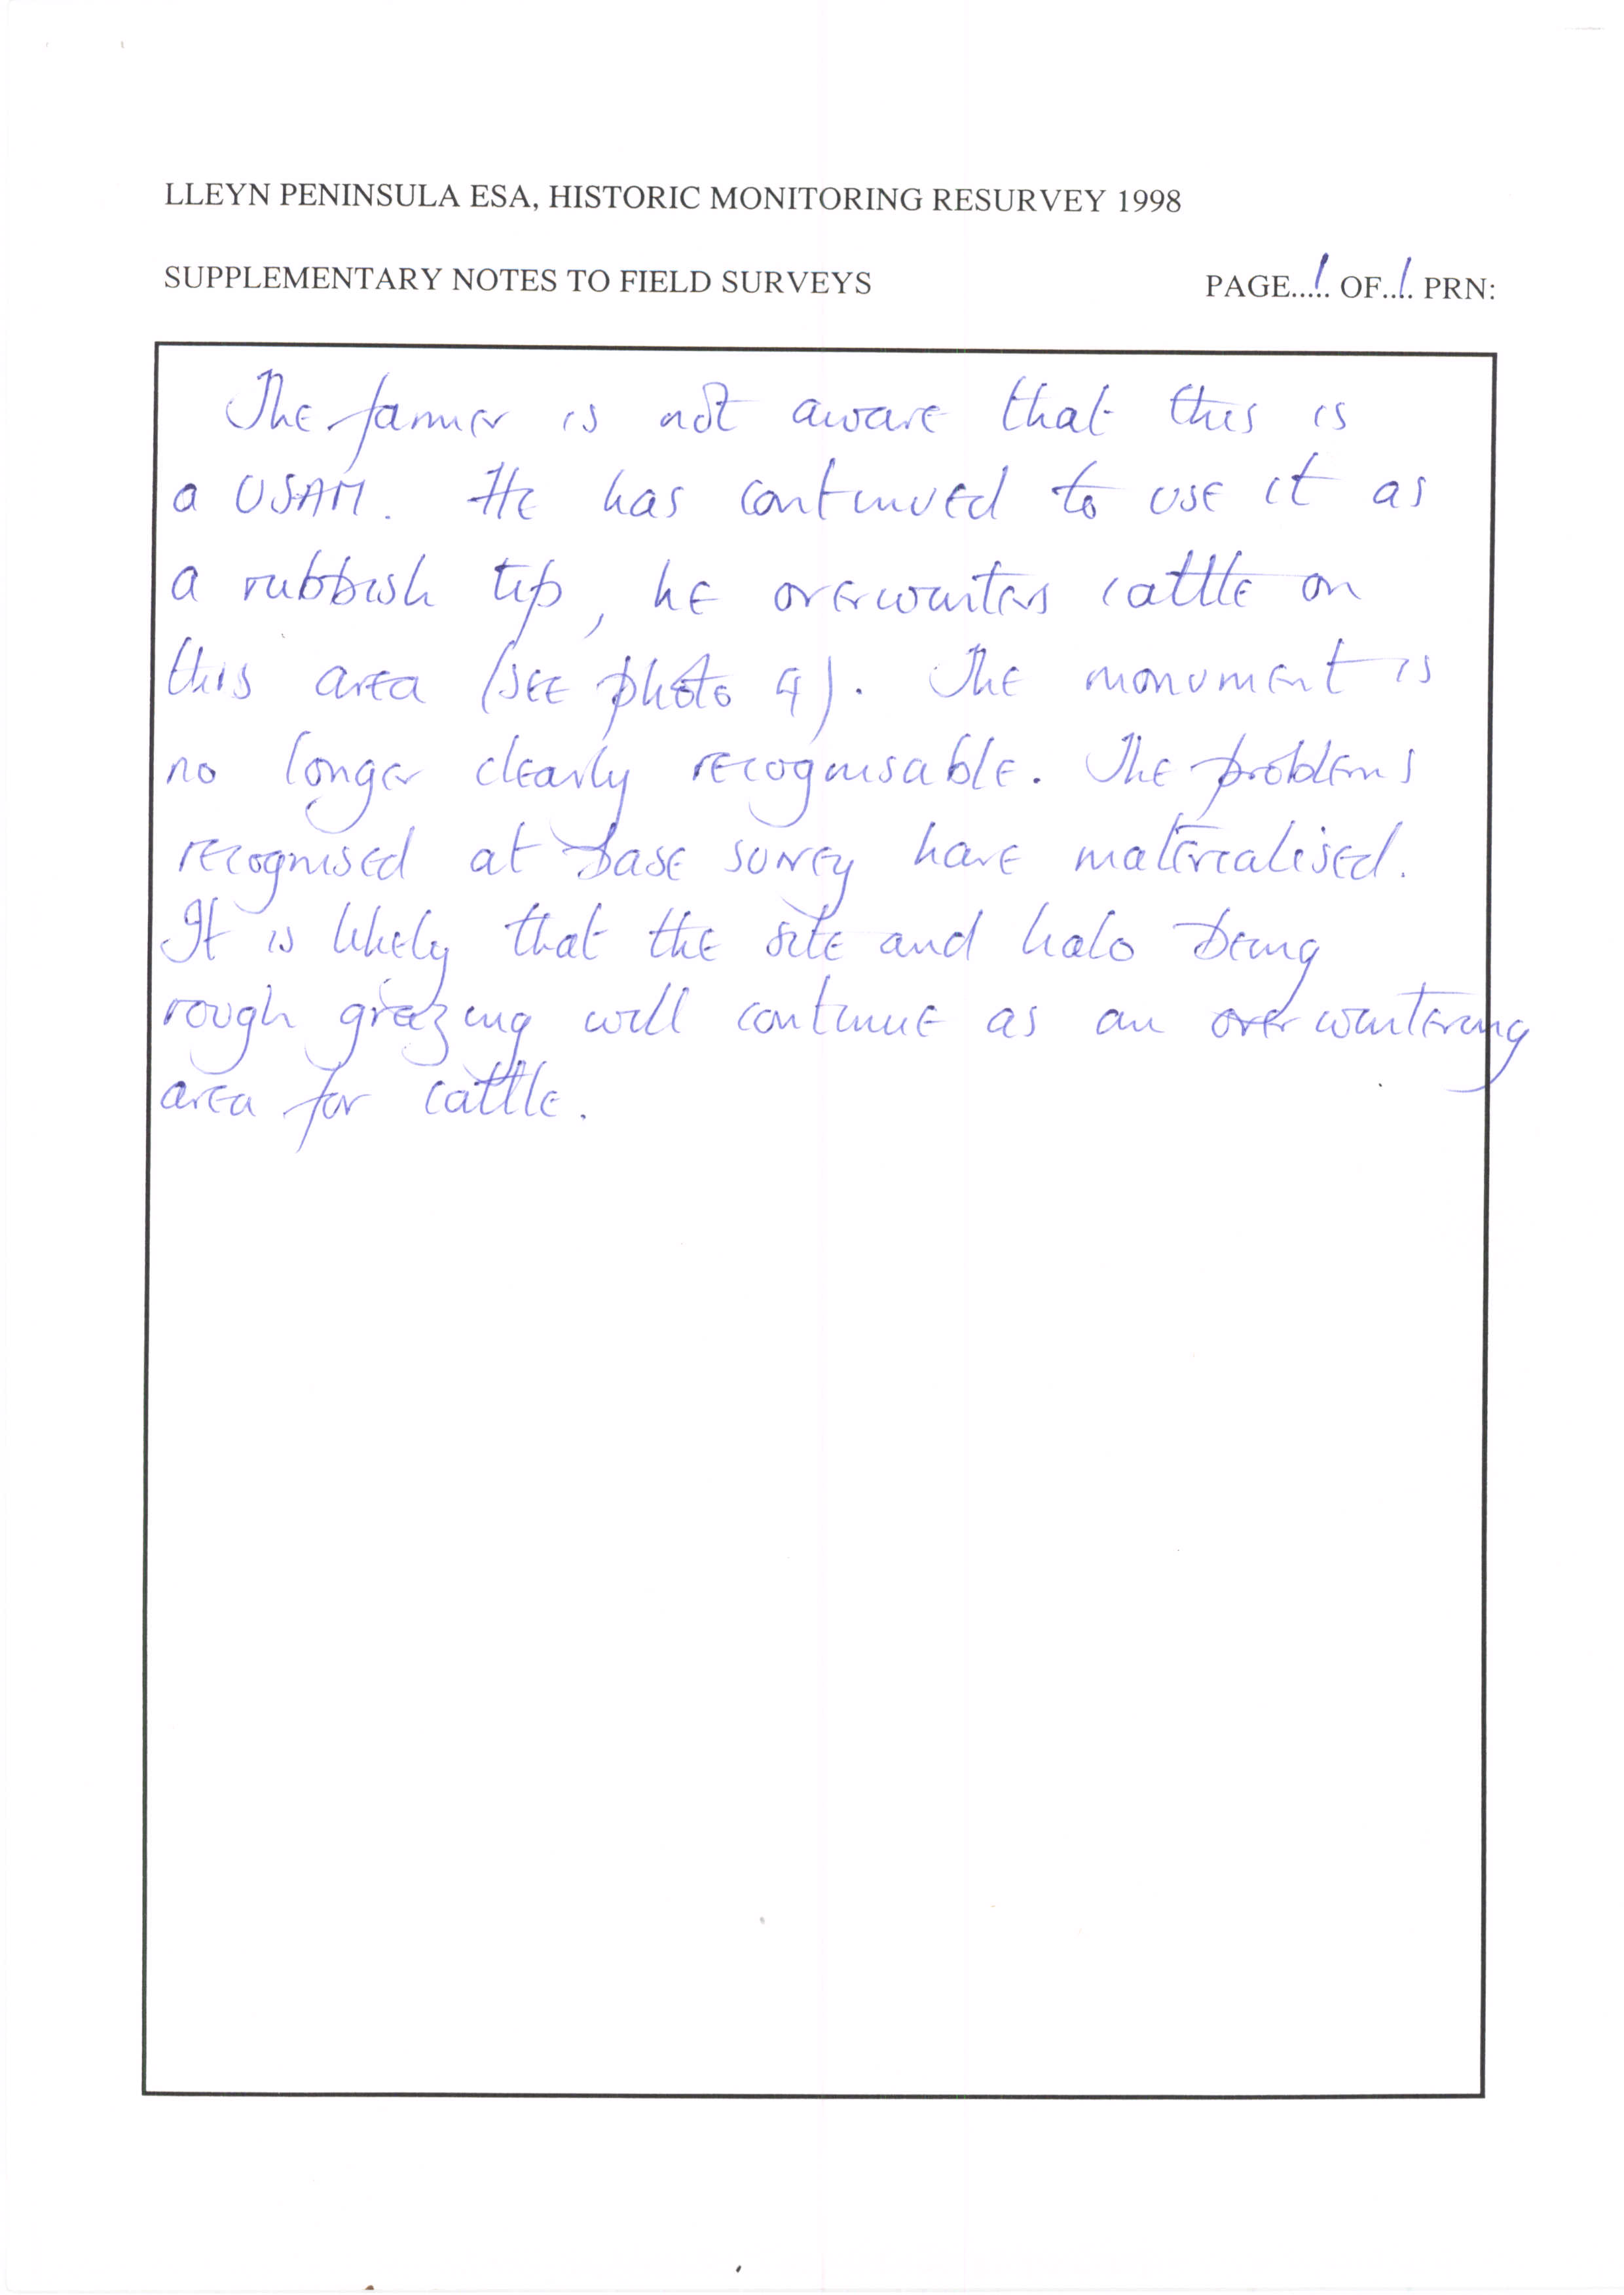 LLEYN PENINSULA ESA, HISTORIC MONITORING RESURVEY 1998
SUPPLEMENTARY NOTES TO FIELD SURVEYS PAGE..1.. OF..1.. PRN:
The farmer is not aware that this is
a USAM. He has continued to use it as
a rubbish tip, he overwinters cattle on
this area (see photo 4). The monument is
no longer clearly recognisable. The problems
recognised at base survey have materialised.
It is likely that the site and halo being
rough grazing will continue as an overwintering
area for cattle.